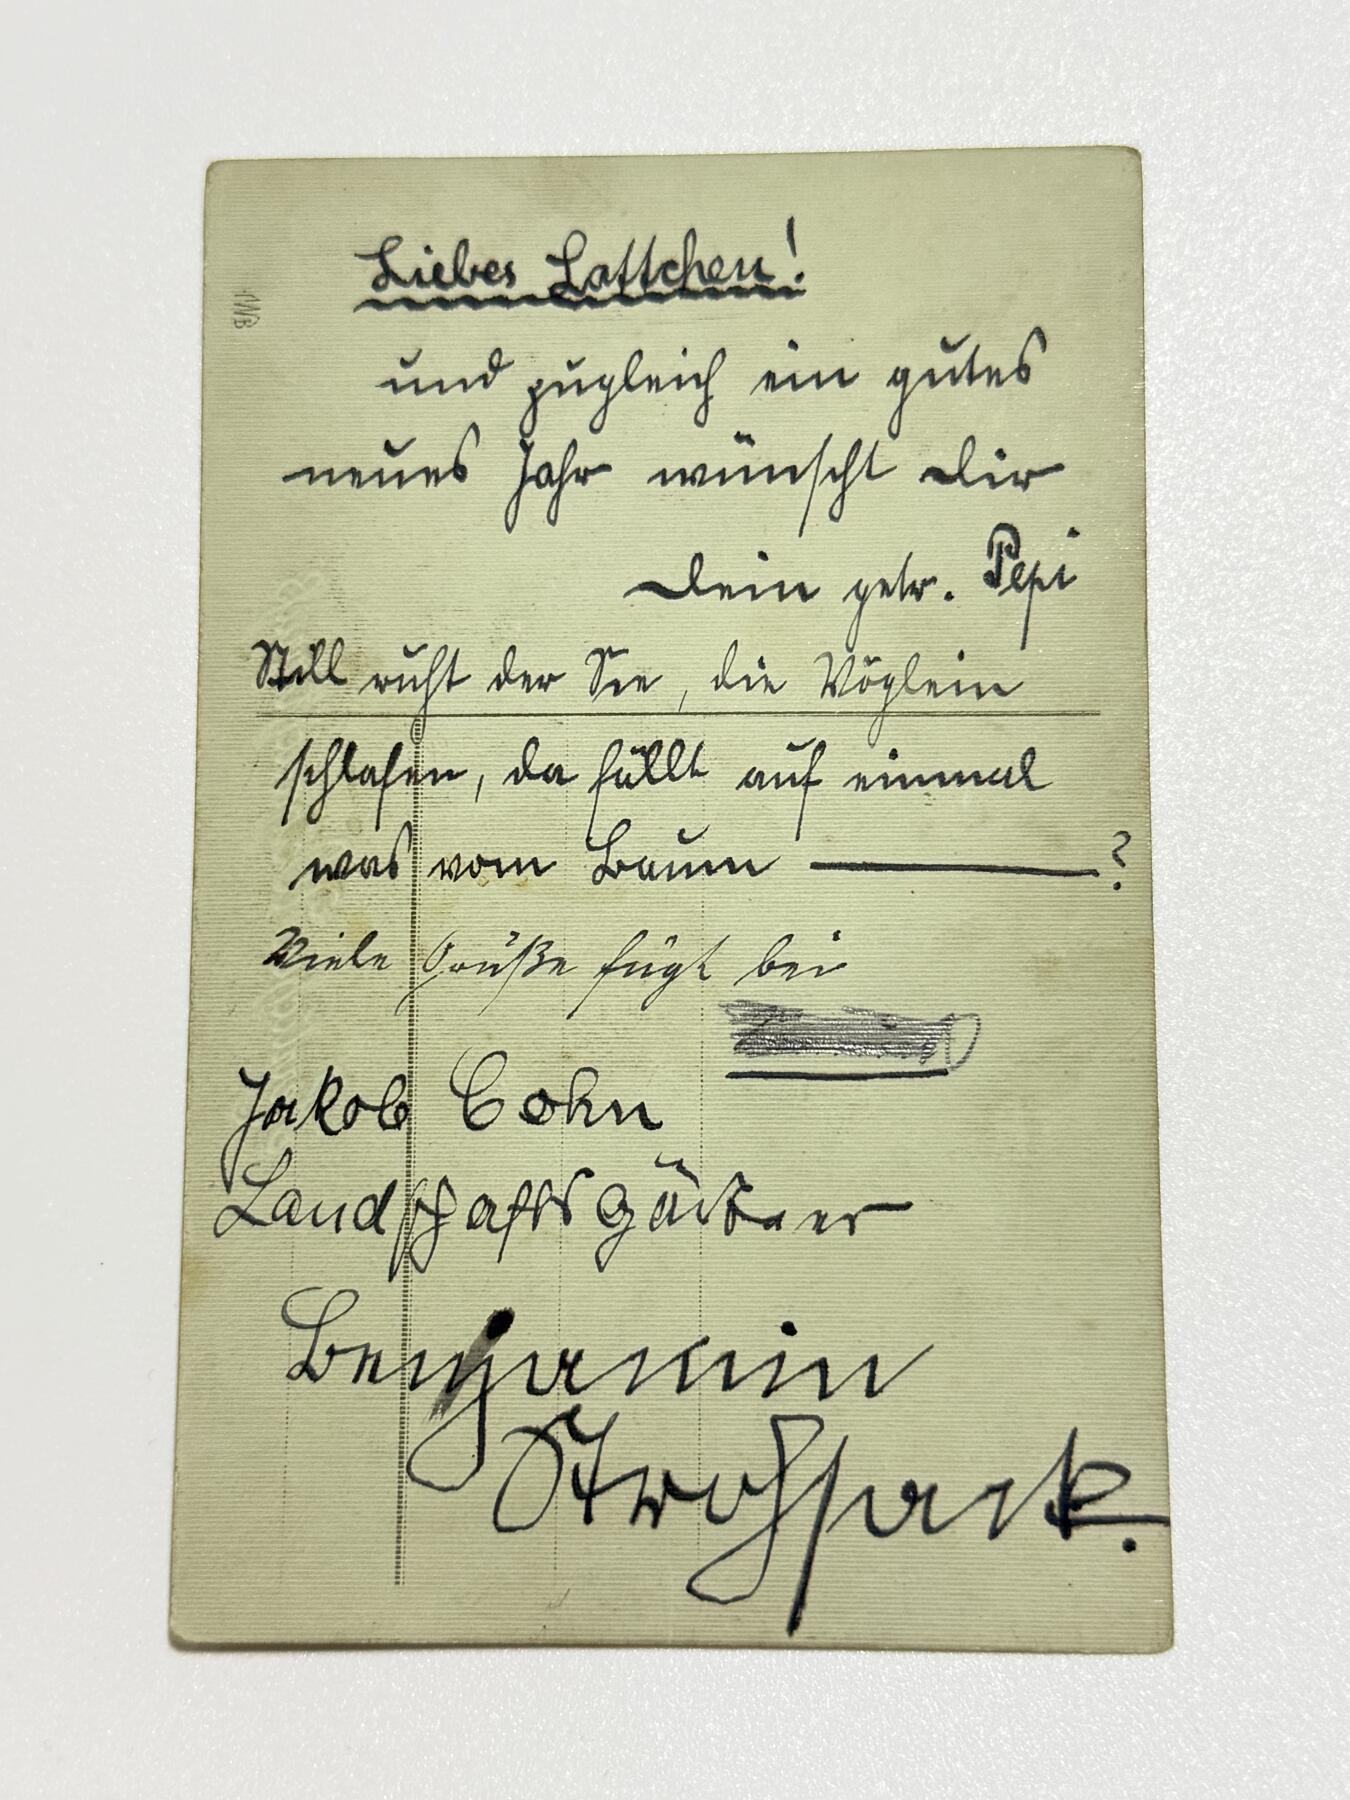 Liebes Lottchen!
und zugleich ein gutes
neues Jahr wünscht Dir
Dein getr. Pepi
Still ruht der See, die Vöglein
schlafen, da fällt auf einmal
was vom Baum — ?
Viele Grüße fügt bei
Jakob Cohn
Landschaftsgärtner
Benjamin
Strohsack.